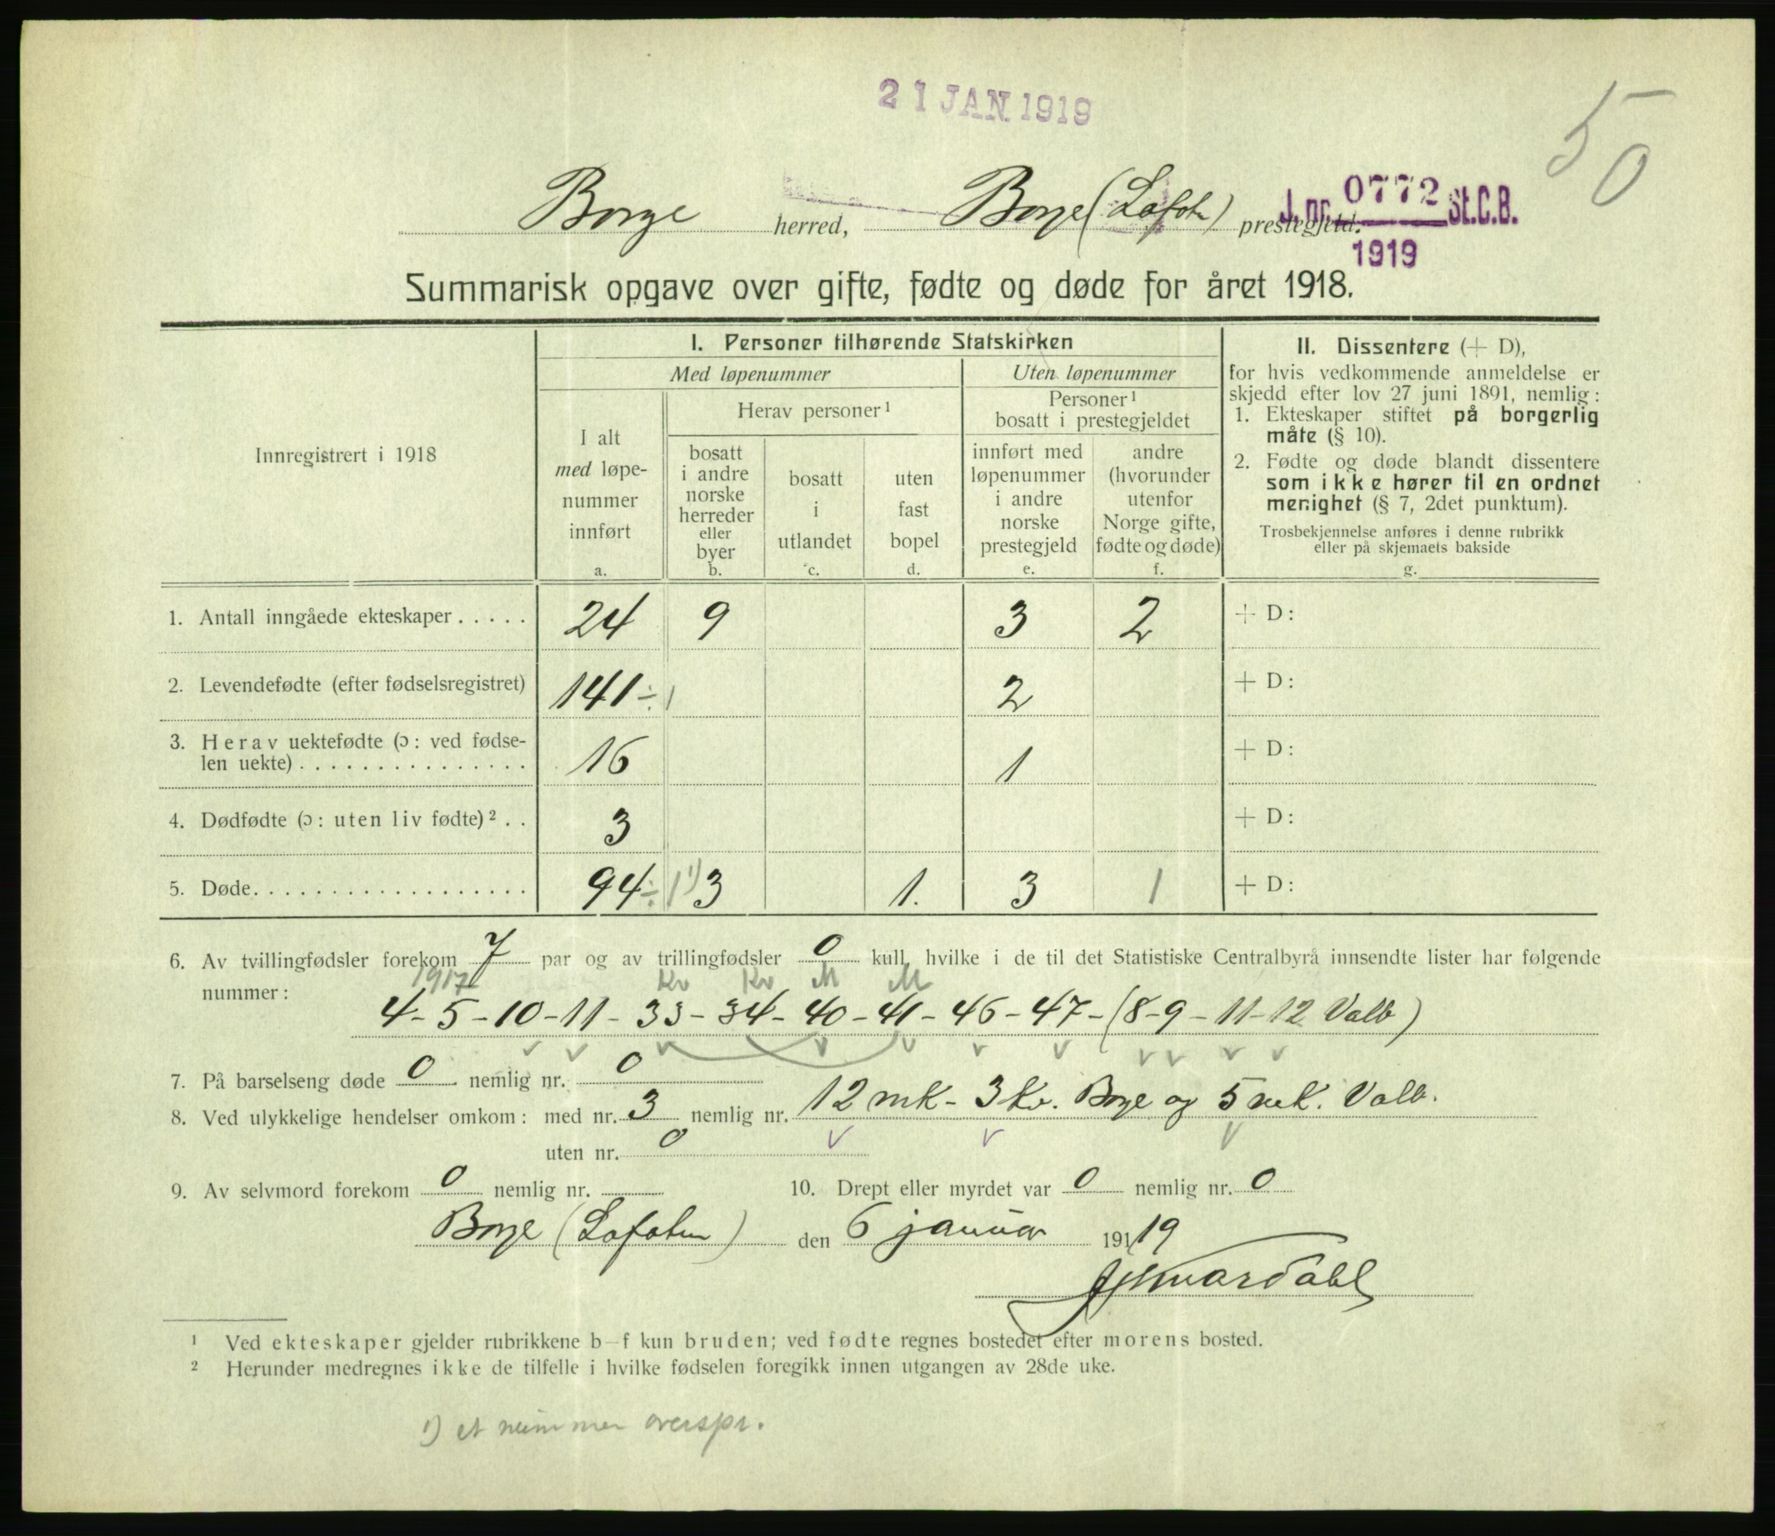 21 JAN 1919
50
Borge herred, Borge (Lofoten) prestegjeld.
J. nr. 0772 St.C.B.
1919
Summarisk opgave over gifte, fødte og døde for året 1918.
Innregistrert i 1918
I. Personer tilhørende Statskirken
Med løpenummer
Uten løpenummer
I alt
med løpe-
nummer
innført
a.
Herav personer¹
bosatt
i andre
norske
herreder
eller
byer
b.
bosatt
i
utlandet
c.
uten
fast
bopel
d.
Personer¹
bosatt i prestegjeldet
innført med
løpenummer
i andre
norske
prestegjeld
e.
andre
(hvorunder
utenfor
Norge gifte,
fødte og døde)
f.
II. Dissentere (+ D),
for hvis vedkommende anmeldelse er
skjedd efter lov 27 juni 1891, nemlig:
1. Ekteskaper stiftet på borgerlig
måte (§ 10).
2. Fødte og døde blandt dissentere
som ikke hører til en ordnet
menighet (§ 7, 2det punktum).
Trosbekjennelse anføres i denne rubrikk
eller på skjemaets bakside
g.
1. Antall inngåede ekteskaper . . . . . 24 9 3 2 + D:
2. Levendefødte (efter fødselsregistret) 141 ÷ 1 2 + D:
3. Herav uektefødte (ɔ: ved fødse-
len uekte) . . . . . . . . . . . . . . . 16 1 + D:
4. Dødfødte (ɔ: uten liv fødte)² . . 3 + D:
5. Døde . . . . . . . . . . . . . . . . . . 94 ÷ 1 ¹) 3 1. 3 1 + D:
6. Av tvillingfødsler forekom 7 par og av trillingfødsler 0 kull, hvilke i de til det Statistiske Centralbyrå innsendte lister har følgende
nummer:
1917 Kv Kv M M
4 - 5 - 10 - 11 - 33 - 34 - 40 - 41 - 46 - 47 - (8 - 9 - 11 - 12 Valb)
7. På barselseng døde 0 nemlig nr. 0
8. Ved ulykkelige hendelser omkom: med nr. 3 nemlig nr. 12 mk - 3 Kv. Borge og 5 mk. Valb.
uten nr. 0
9. Av selvmord forekom 0 nemlig nr.
10. Drept eller myrdet var 0 nemlig nr. 0
Borge (Lofoten) den 6 januar 191 19
¹ Ved ekteskaper gjelder rubrikkene b–f kun bruden; ved fødte regnes bostedet efter morens bosted.
² Herunder medregnes ikke de tilfelle i hvilke fødselen foregikk innen utgangen av 28de uke.
¹) et nummer overspr.